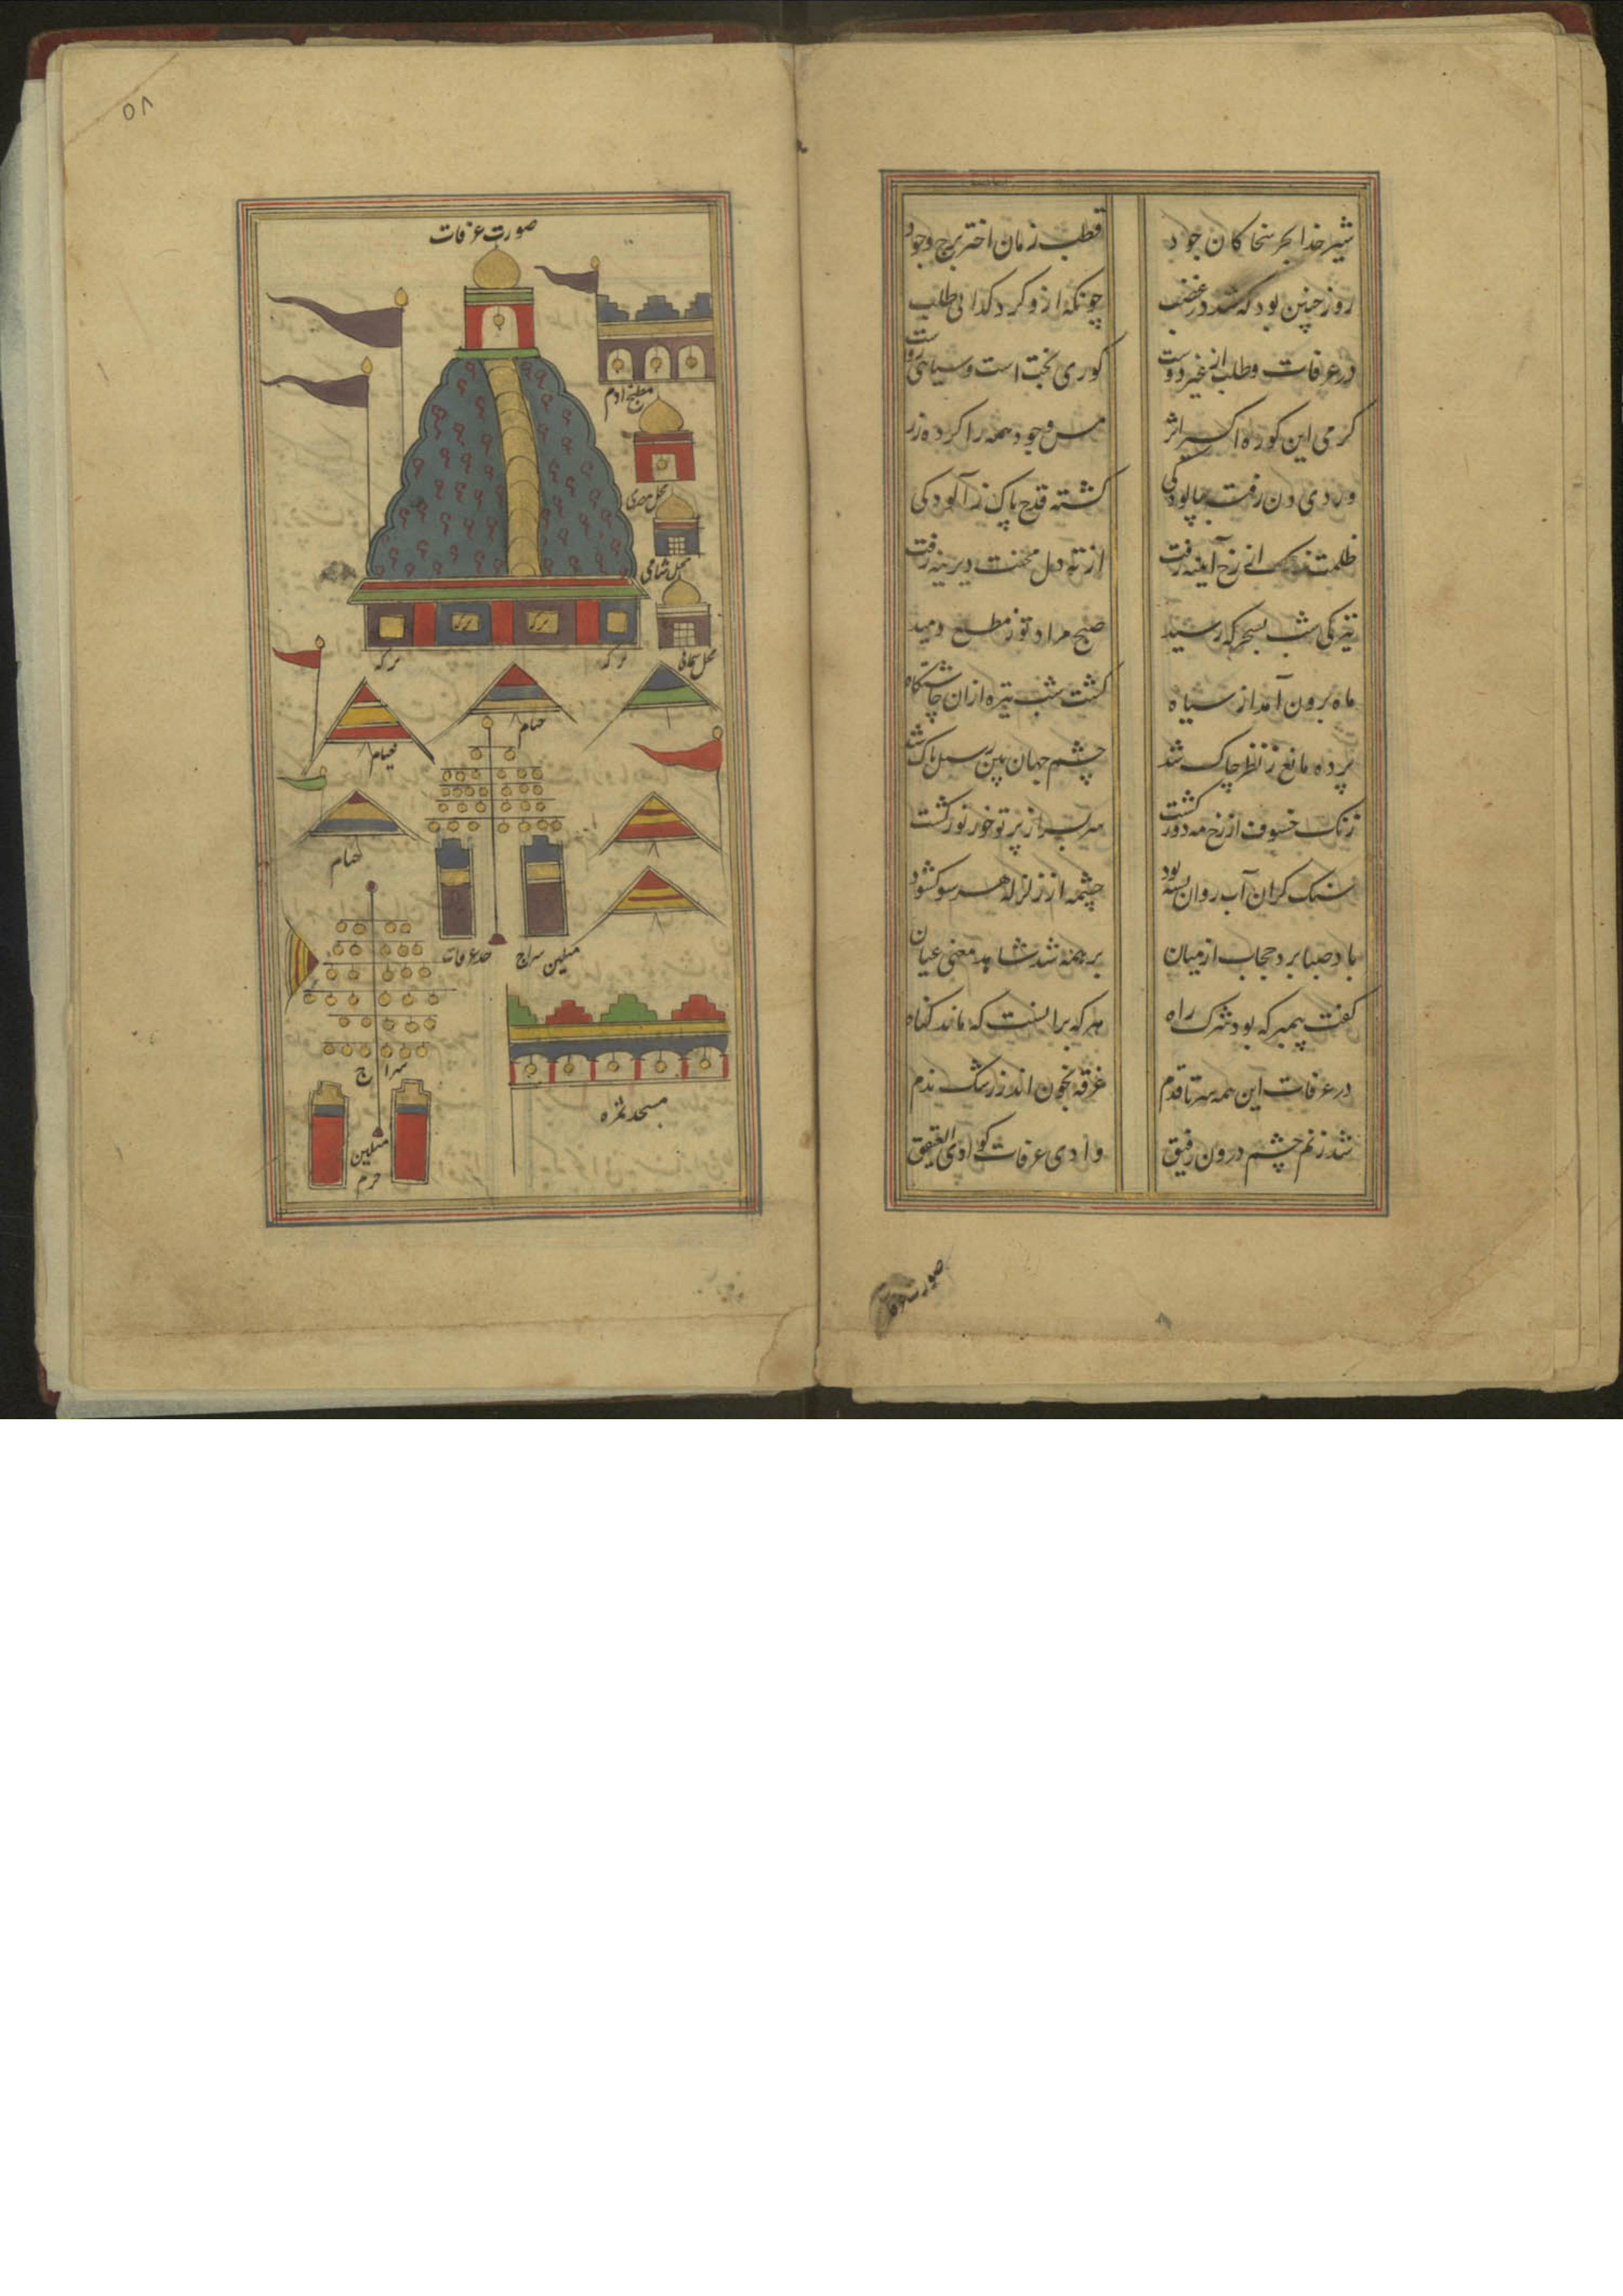 شیر خدا بحر سخا کان جود قطب زمان اختر برج وجود
روز چنین بود که شد در غضب چونکه ازو کرد گدائی طلب
در عرفات و طلب از غیر دوست کوری بخت است و سیاهی روست
کرمی این کوره اکسیر اثر مس وجود همه را کرده زر
دردی دن رفت بپالودگی گشته قدح پاک ز آلودگی
ظلمت زنگ از رخ آینه رفت از ته دل محنت دیرینه رفت
تیرگی شب بسحر که رسید صبح مراد تو ز مطلع دمید
ماه برون آمد از سیاه گشت شب تیره ازان چاشتگاه
پرده مانع ز نظر چاک شد چشم جهان بین ز سبل پاک شد
زنگ خسوف از رخ مه دور گشت سر بسر از پرتو خور نور گشت
سنگ گران آب روان بسته بود چشمه از زلزله هر سو گشود
باد صبا برد حجاب از میان برهنه شد شاهد معنی عیان
گفت پیمبر که بود شرک راه هر که برانست که ماند گناه
در عرفات این همه سر تا قدم غرقه بخون اند ز رشک ندم
شد ز نم چشم درون رفیق وادی عرفات کوادی العقیق
صورت عرفات
۵۸
صورت عرفات
مطبخ آدم
محل مصری
محل شامی
محل
برکه
برکه
برکه
برکه
خیام
خیام
خیام
میلین
سراج
حد عرفات
سراج
مسجد نمره
میلین
حرم